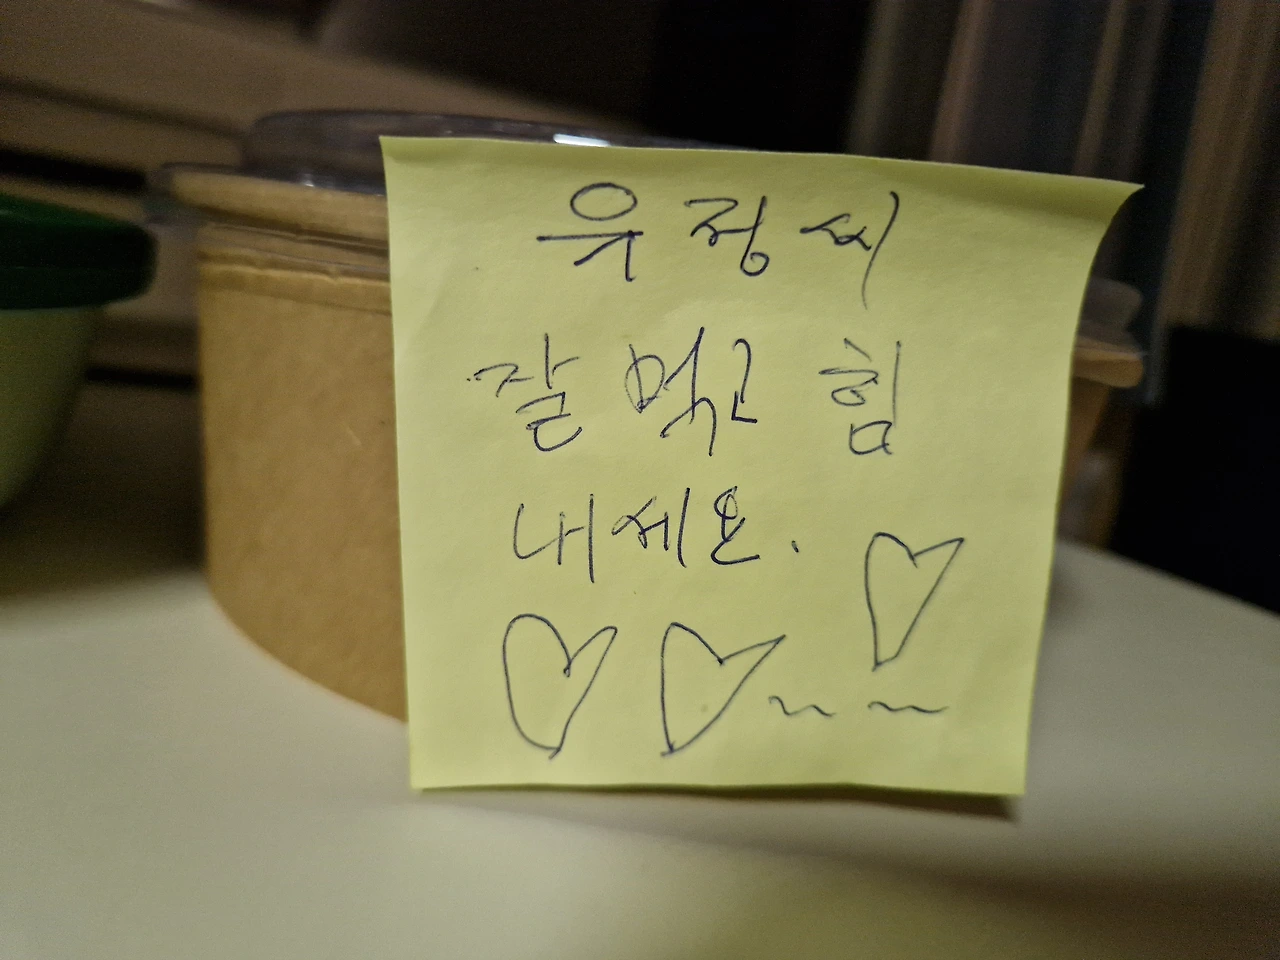 유정씨
잘 먹고 힘
내세요.
♡ ♡ ~ ~ ♡